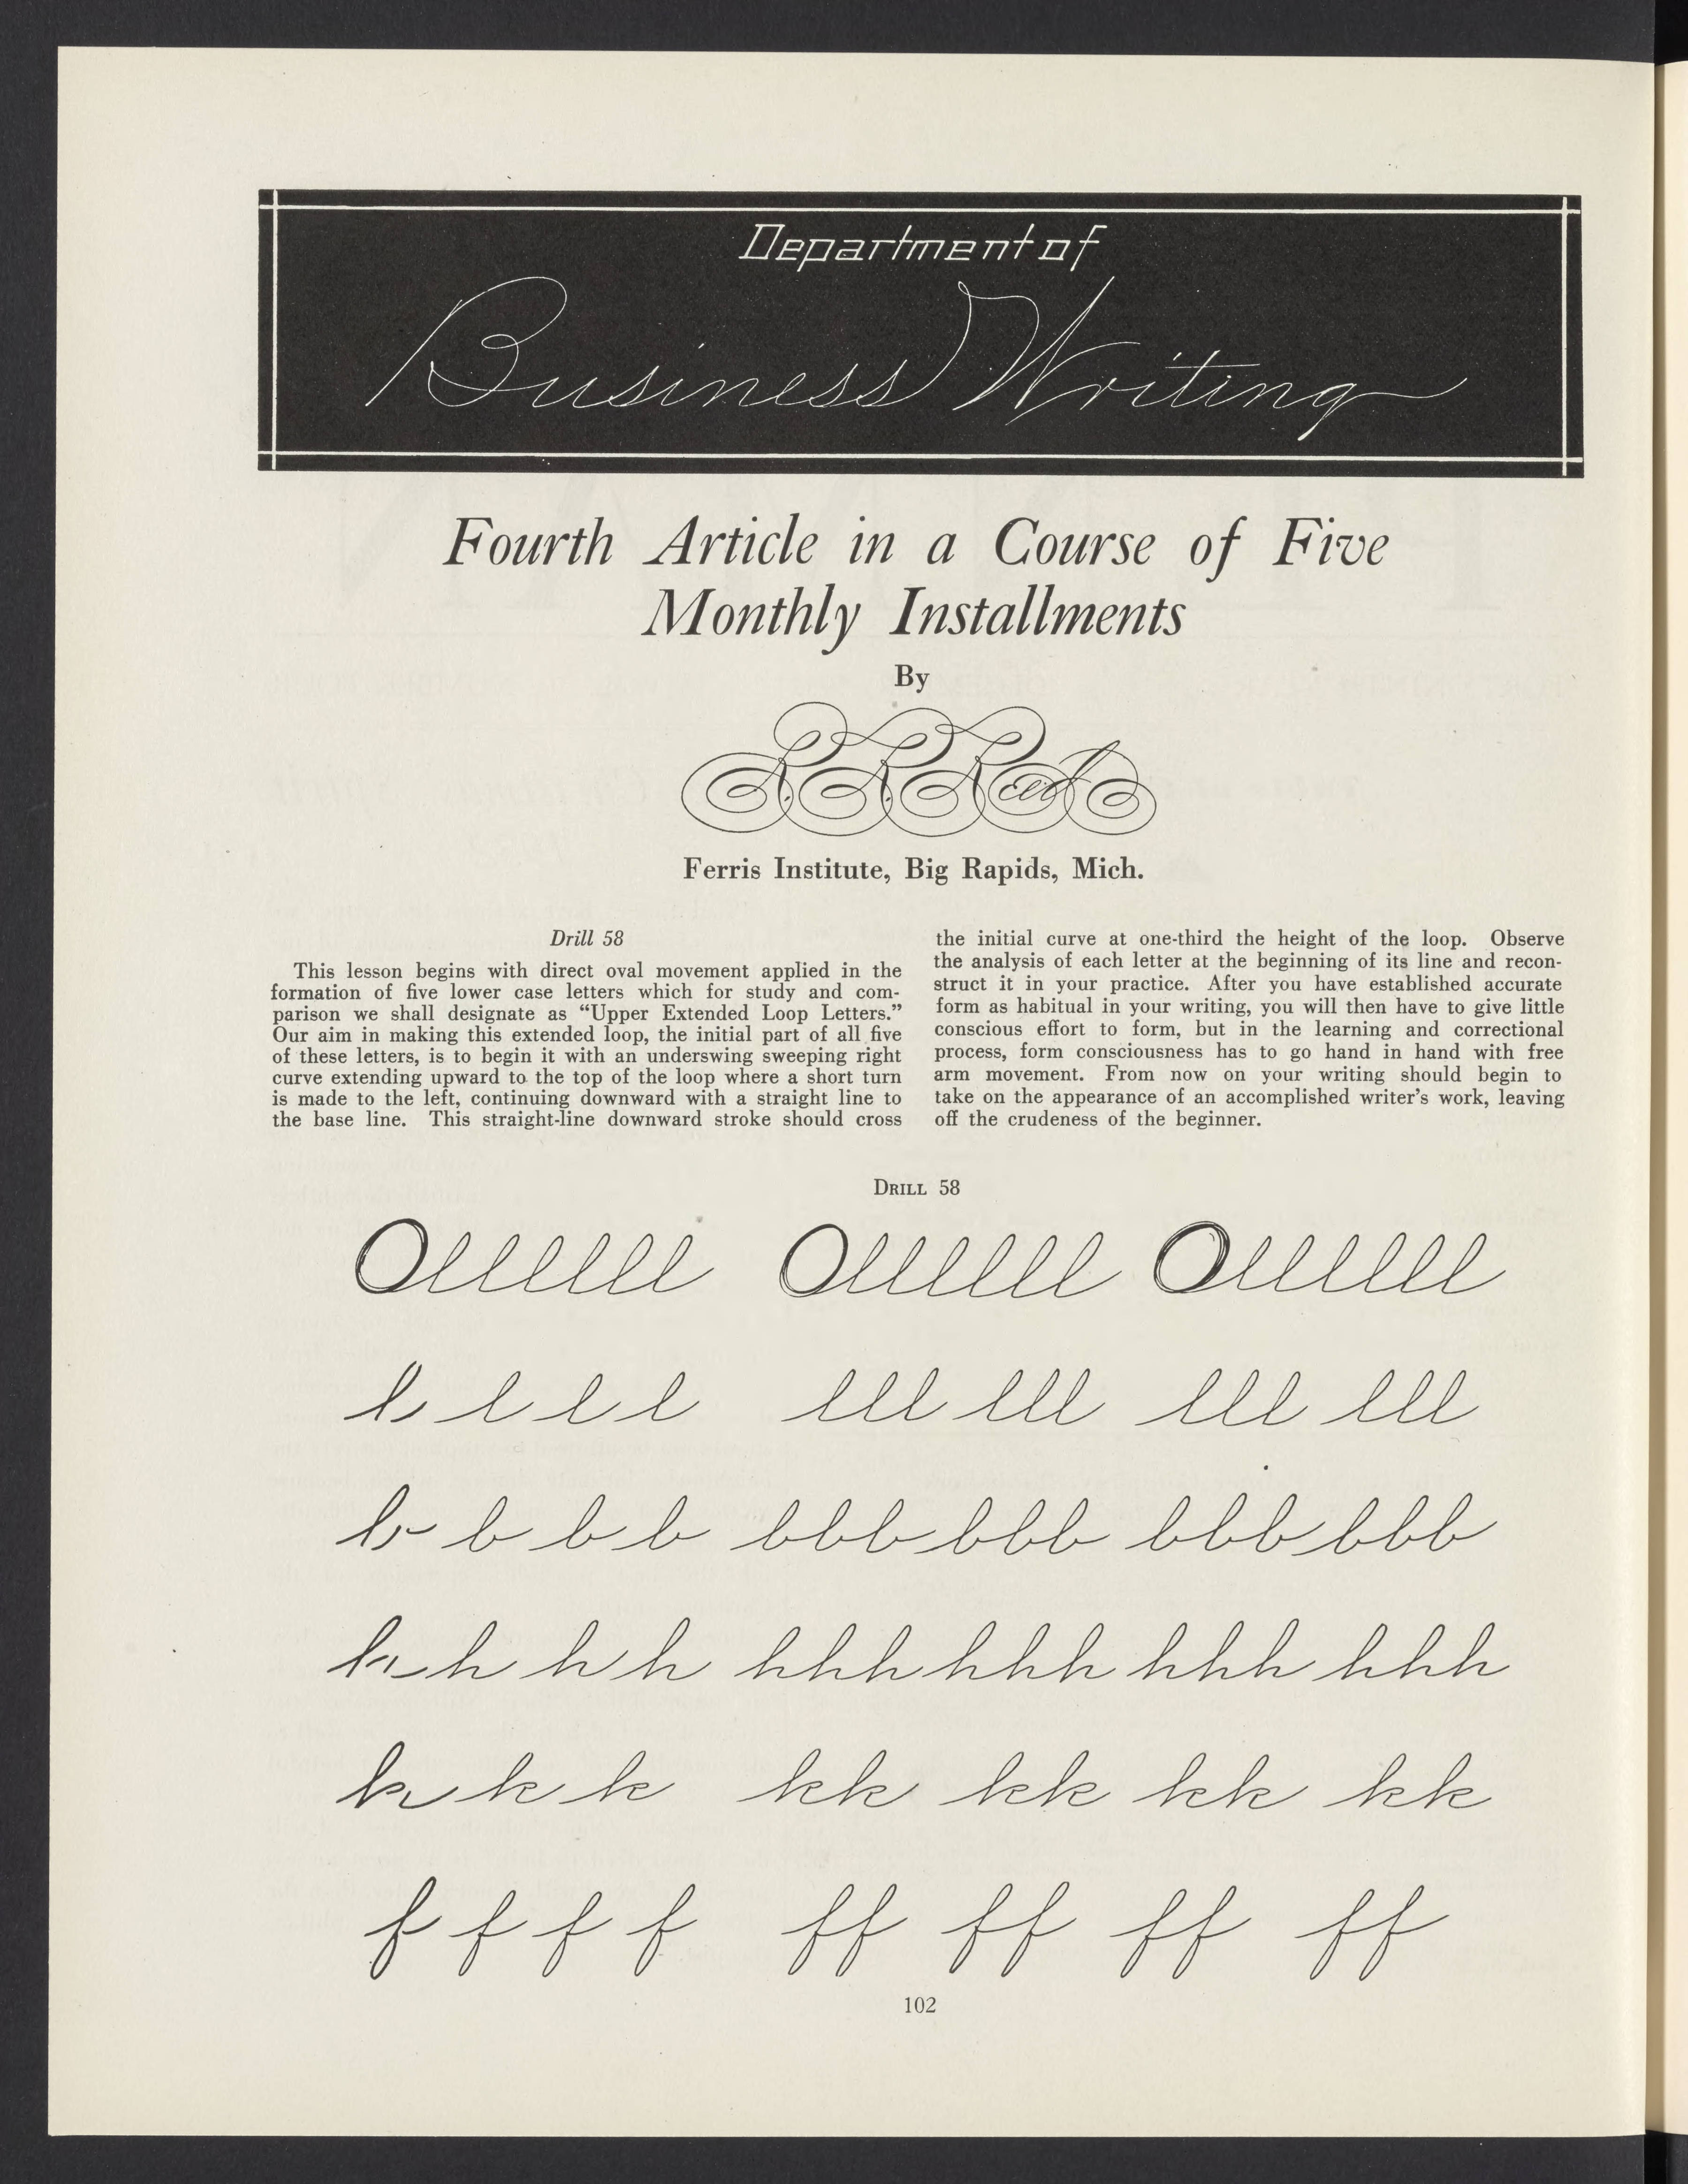 Department of
Business Writing
Fourth Article in a Course of Five
Monthly Installments
By
R.R. Reed
Ferris Institute, Big Rapids, Mich.
Drill 58
This lesson begins with direct oval movement applied in the
formation of five lower case letters which for study and com-
parison we shall designate as “Upper Extended Loop Letters.”
Our aim in making this extended loop, the initial part of all five
of these letters, is to begin it with an underswing sweeping right
curve extending upward to the top of the loop where a short turn
is made to the left, continuing downward with a straight line to
the base line. This straight-line downward stroke should cross
the initial curve at one-third the height of the loop. Observe
the analysis of each letter at the beginning of its line and recon-
struct it in your practice. After you have established accurate
form as habitual in your writing, you will then have to give little
conscious effort to form, but in the learning and correctional
process, form consciousness has to go hand in hand with free
arm movement. From now on your writing should begin to
take on the appearance of an accomplished writer’s work, leaving
off the crudeness of the beginner.
Drill 58
Ollllll Ollllll Ollllll
l l l l lll lll lll lll
b b b b bbb bbb bbb bbb
h h h h hhh hhh hhh hhh
k k k kk kk kk kk
f f f f ff ff ff ff
102